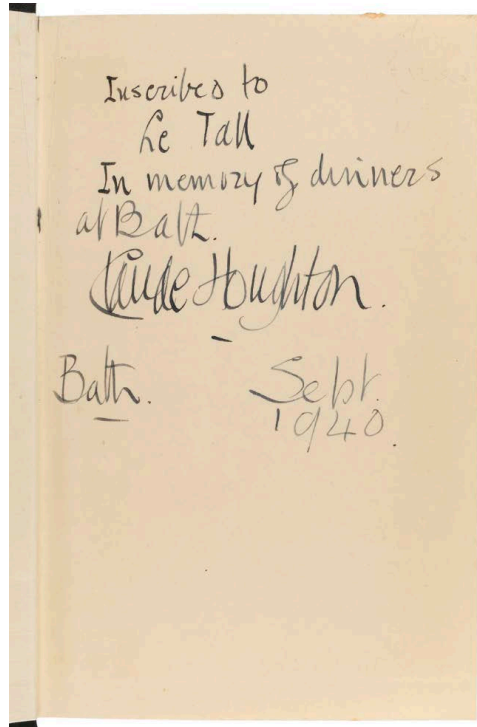 Inscribed to
Le Tall
In memory of dinners
at Bath.
Claude Houghton.
Bath. Sept.
1940.